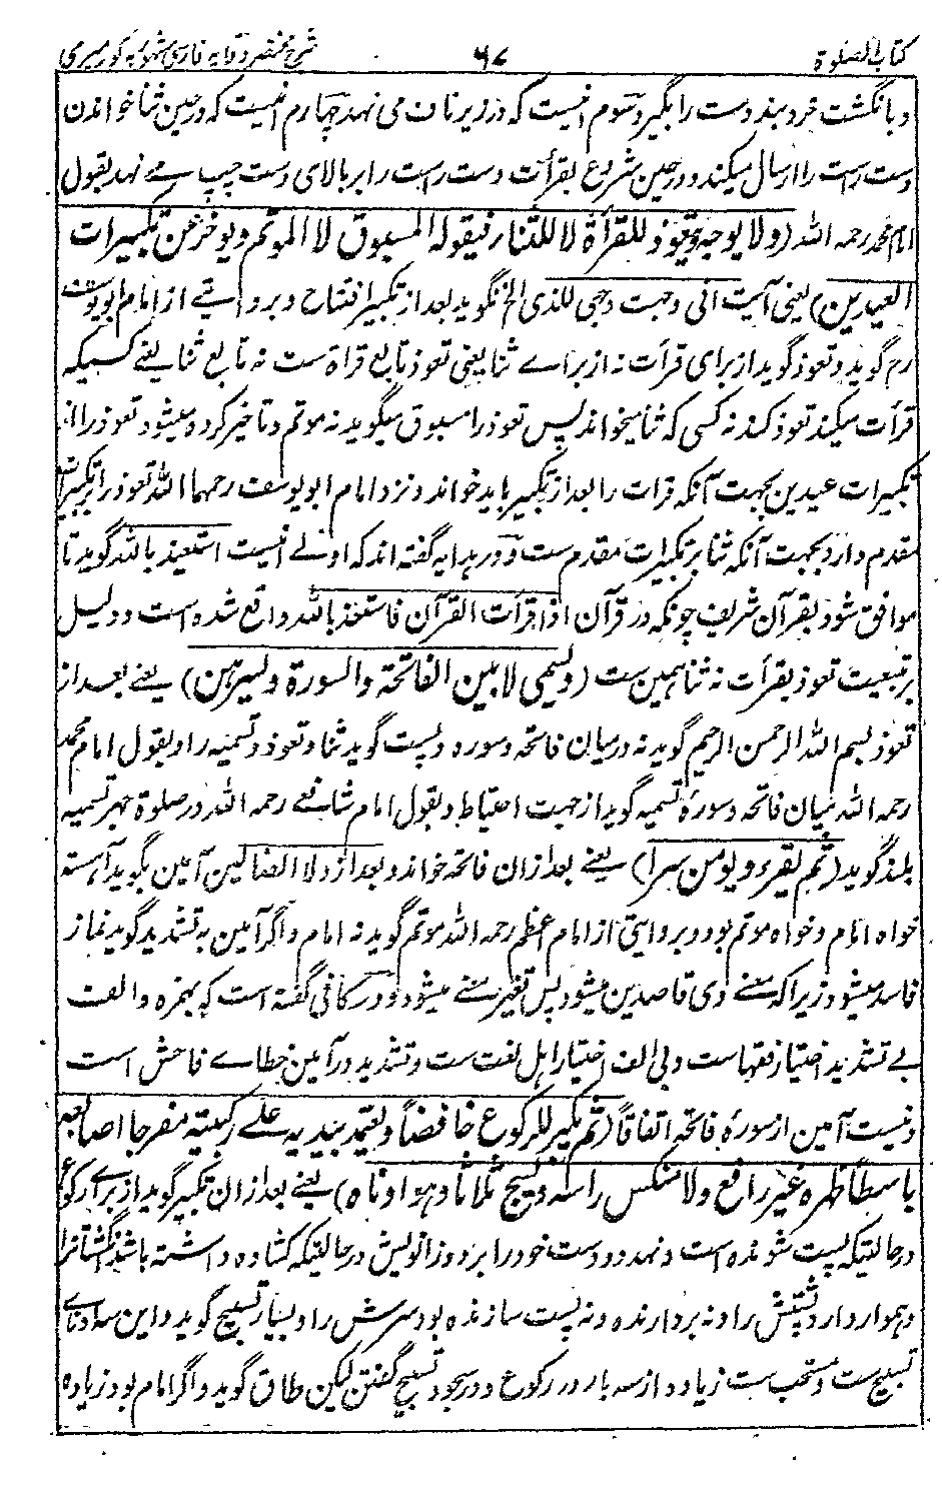 کتاب الصلوة ۶۷ شرح مختصر وقایه فارسی مشهور به کور میری
وبانگشت خرد بند دست را بگیرد سوم انیست که در زیر ناف می نهد چهارم انیست که در حین ثنا خواندن
دست راست را ارسال میکند و در حین شروع بقرأت دست راست را بر بالای دست چپ مے نهد بقول
امام محمد رحمه الله (ولا یوجه ویتعوذ للقرأة لا للثنا فیقوله المسبوق لا الموتم ویوخر عن تکبیرات
العیدین) یعنی آیت انی وجهت وجهی للذی الخ نگوید بعد از تکبیر افتتاح و بروایتے از امام ابو یوسف
رح گوید و تعوذ گوید از برای قرأت نه از براے ثنا یعنی تعوذ تابع قراة ست نه تابع ثنا یعنے کسیکه
قرأت میکند تعوذ کند نه کسی که ثنا میخواند پس تعوذ را مسبوق میگوید نه موتم و تاخیر کرده میشود تعوذ را از
تکبیرات عیدین بجهت آنکه قرات را بعد از تکبیر باید خواند و نزد امام ابو یوسف رحمهما الله تعوذ را بر تکبیرات
مقدم دارد بجهت آنکه ثنا بر تکبیرات مقدم ست و در هدایه گفته اند که اولے انیست استعیذ بالله گوید تا
موافق شود بقرآن شریف چونکه در قرآن اذا قرأت القرآن فاستعذ بالله واقع شده است و دلیل
بر تبعیت تعوذ بقرأت نه ثنا همین ست (ویسمی لا بین الفاتحة والسورة ویسرهن) یعنے بعد از
تعوذ بسم الله الرحمن الرحیم گوید نه درمیان فاتحه و سوره و پست گوید ثنا و تعوذ و تسمیه را و بقول امام محمد
رحمه الله میان فاتحه و سورة تسمیه گوید از جهت احتیاط و بقول امام شافعے رحمه الله در صلوة جهر تسمیه
بلند گوید (ثم یقرء ویومن سرا) یعنے بعد ازان فاتحه خواند و بعد از ولا الضالین آمین بگوید آهسته
خواه امام و خواه موتم بود و بروایتی از امام اعظم رحمه الله موتم گوید نه امام و اگر آمین به تشدید گوید نماز
فاسد میشود زیرا که معنے وی قاصدین میشود پس تغیر معنے میشود و در کافی گفته است که بهمزه و الف
بے تشدید اختیار فقهاست و بی الف اختیار اهل لغت ست و تشدید در آمین خطاے فاحش است
و نیست آمین از سورۂ فاتحه اتفاقاً (ثم یکبر للرکوع خافضاً ویعتمد بیدیه علے رکبتیه مفرجا اصابعه
باسطاً ظهره غیر رافع ولا منکس راسه ویسبح ثلاثا وهو ادناه) یعنے بعد ازان تکبیر گوید از براے رکوع
در حالتیکه پست شونده است و نهد دو دست خود را بر دو زانویش در حالتیکه کشاده داشته باشد انگشتانرا
و هموار دارد پشتش را و نه بردارنده و نه پست سازنده بود سرش را و بسیار تسبیح گوید و این سه ادناے
تسبیح ست و مستحب ست زیاده از سه بار در رکوع و در سجود تسبیح گفتن لیکن طاق گوید و اگر امام بود زیاده